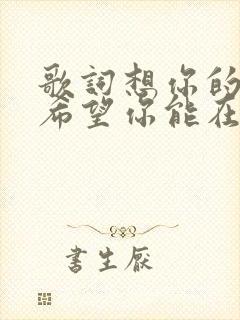 歌詞想你的
希望你能在
書生厭